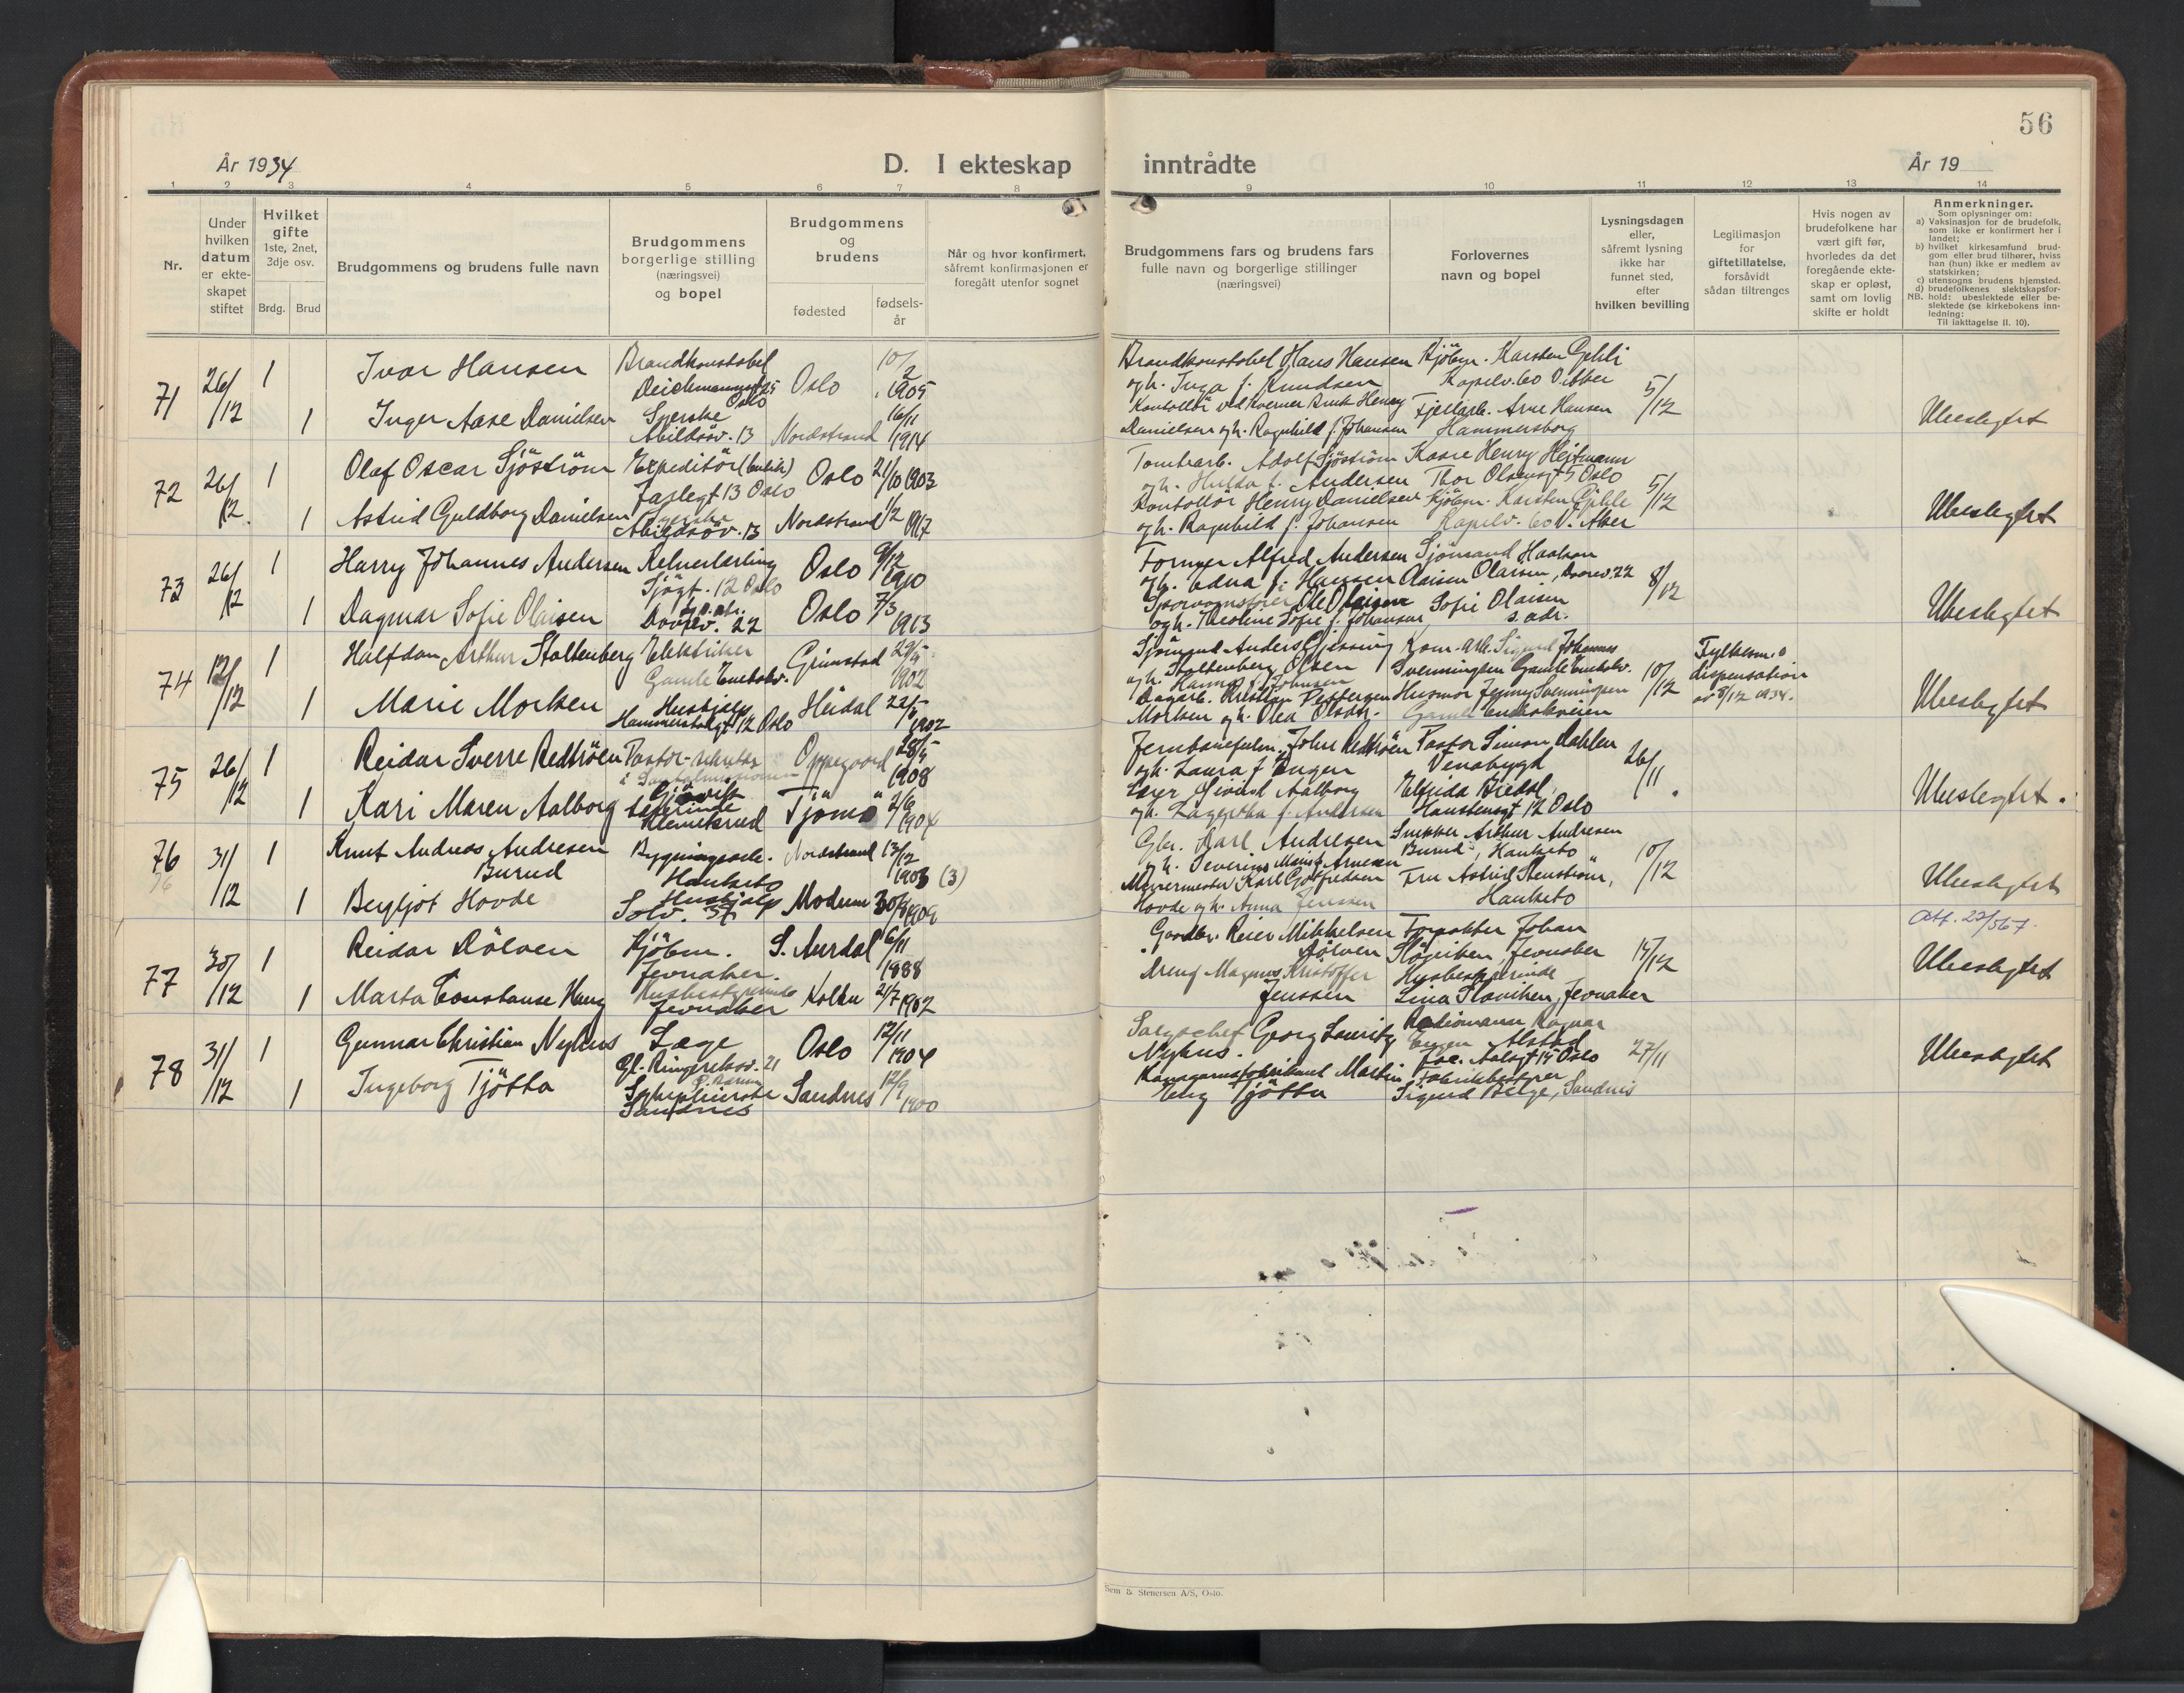 56
År 1934
D. I ekteskap inntrådte
År 19
1 2 3 4 5 6 7 8 9 10 11 12 13 14
Nr.
Under hvilken datum er ekteskapet stiftet
Hvilket gifte
1ste, 2net, 3dje osv.
Brdg. Brud
Brudgommens og brudens fulle navn
Brudgommens borgerlige stilling (næringsvei) og bopel
Brudgommens og brudens
fødested
fødselsår
Når og hvor konfirmert, såfremt konfirmasjonen er foregått utenfor sognet
Brudgommens fars og brudens fars fulle navn og borgerlige stillinger (næringsvei)
Forlovernes navn og bopel
Lysningsdagen eller, såfremt lysning ikke har funnet sted, efter hvilken bevilling
Legitimasjon for giftetillatelse, forsåvidt sådan tiltrenges
Hvis nogen av brudefolkene har vært gift før, hvorledes da det foregående ekteskap er opløst, samt om lovlig skifte er holdt
Anmerkninger.
Som oplysninger om:
a) Vaksinasjon for de brudefolk, som ikke er konfirmert her i landet;
b) hvilket kirkesamfund brudgom eller brud tilhører, hviss han (hun) ikke er medlem av statskirken;
c) utensogns brudens hjemsted.
d) brudefolkenes slektskapsforhold: ubeslektede eller beslektede (se kirkebokens innledning:
NB. Til iakttagelse II. 10).
71 26/12 1 Ivar Hansen Brandkonstabel Deichmannsgt 25 Oslo Oslo 10/2 1905
Brandkonstabel Hans Hansen og h. Inga f. Knudsen Kjöbm. Karsten Gehli 5/12 Ubeslegtet
1 Inger Aase Danielsen Syerske Abildsöv. 13 Nordstrand 16/11 1914
Danielsen og h. Ragnhild f. Johansen Arne Hansen Hammersborg
72 26/12 1 Olaf Oscar Sjöström Expeditör Oslo 21/10 1903
Adolf Sjöström og h. Hulda f. Andersen Kaare Henry Heitmann Thor Olsensgt 5 Oslo 5/12 Ubeslegtet
1 Astrid Guldborg Danielsen Syerske Abildsöv. 13 Nordstrand 1/2 1917
Kontollör Henry Danielsen og h. Ragnhild f. Johansen Kjöbm. Karsten
73 26/12 1 Harry Johannes Andersen Sjögt. 12 Oslo Oslo 9/12 1910
Former Alfred Andersen og h. Edna f. Hansen Sjömand Haakon Olaisen 8/12 Ubeslegtet
1 Dagmar Sofie Olaisen Dovrev. 22 Oslo 7/3 1913
Sporvognsförer Ole Olaisen Sofie Olaisen s. adr.
74 12/12 1 Halfdan Arthur Stoltenberg Elektriker Gamle Enebakv. Grimstad 29/5 1902
Sjömand Anders Gjessing Stoltenberg Olsen og h. Hanna f. Johnsen Sigurd Johannes Svenningsen Gamle Enebakv. 10/12 Fylkesm. dispensation av 8/12 1934. Ubeslegtet
1 Marie Morken Hushjelp Hammerstadgt 12 Oslo Heidal 22/5 1902
Dagarb. Kristian Pettersen Morken og h. Olea Olsdtr. Husmor Jenny Svenningsen Gamle Enebakveien
75 26/12 1 Reidar Sverre Redtröen Oppegaard 28/5 1908
John Redtröen og h. Laura f. Engen Pastor Simon Dahlen Venabygd 26/11 Ubeslegtet.
1 Kari Maren Aalborg Lærerinde Klemetsrud Tjömö 2/6 1904
Lærer Eivind Aalborg og h. f. Andersen Elfrida 12 Oslo
76 31/12 1 Knut Andreas Andresen Burud Bygningsarb. Hauketo Nordstrand 13/12 1903 (3)
Gbr. Karl Andresen og h. f. Arnesen Snekker Arthur Andresen Burud, Hauketo 10/12 Ubeslegtet
1 Bergljot Hovde Hushjelp Solv. 37 Modum 30/8 1909
Murermester Karl Gotfredsen Hovde og h. Anna Jenssen Fru Astrid Stenström, Hauketo
Att. 22/5 67.
77 30/12 1 Reidar Dölven Kjöbm. Jevnaker. S. Aurdal 16/11 1888
Gaardbr. Reier Mikkelsen Dölven Forpakter Johan Jevnaker 14/12 Ubeslegtet
1 Marta Constanse Haug Husbestyrerinde Jevnaker Kolbu 21/7 1902
Magnus Kristoffer Jenssen Husbestyrerinde Jevnaker
78 31/12 1 Gunnar Christian Nyhus Læge Gl. Ringeriksv. 21 Oslo 12/11 1904
Salgschef Georg Lauritz Nyhus. Ragnar Eugen Alstad 27/11 Ubeslegtet
1 Ingeborg Tjötta Sykepleierske Sandnes Sandnes 12/9 1900
Martin Elieg Tjötta Fabrikbestyrer Sigurd Bilge, Sandnes
Sem & Stenersen A/S, Oslo.